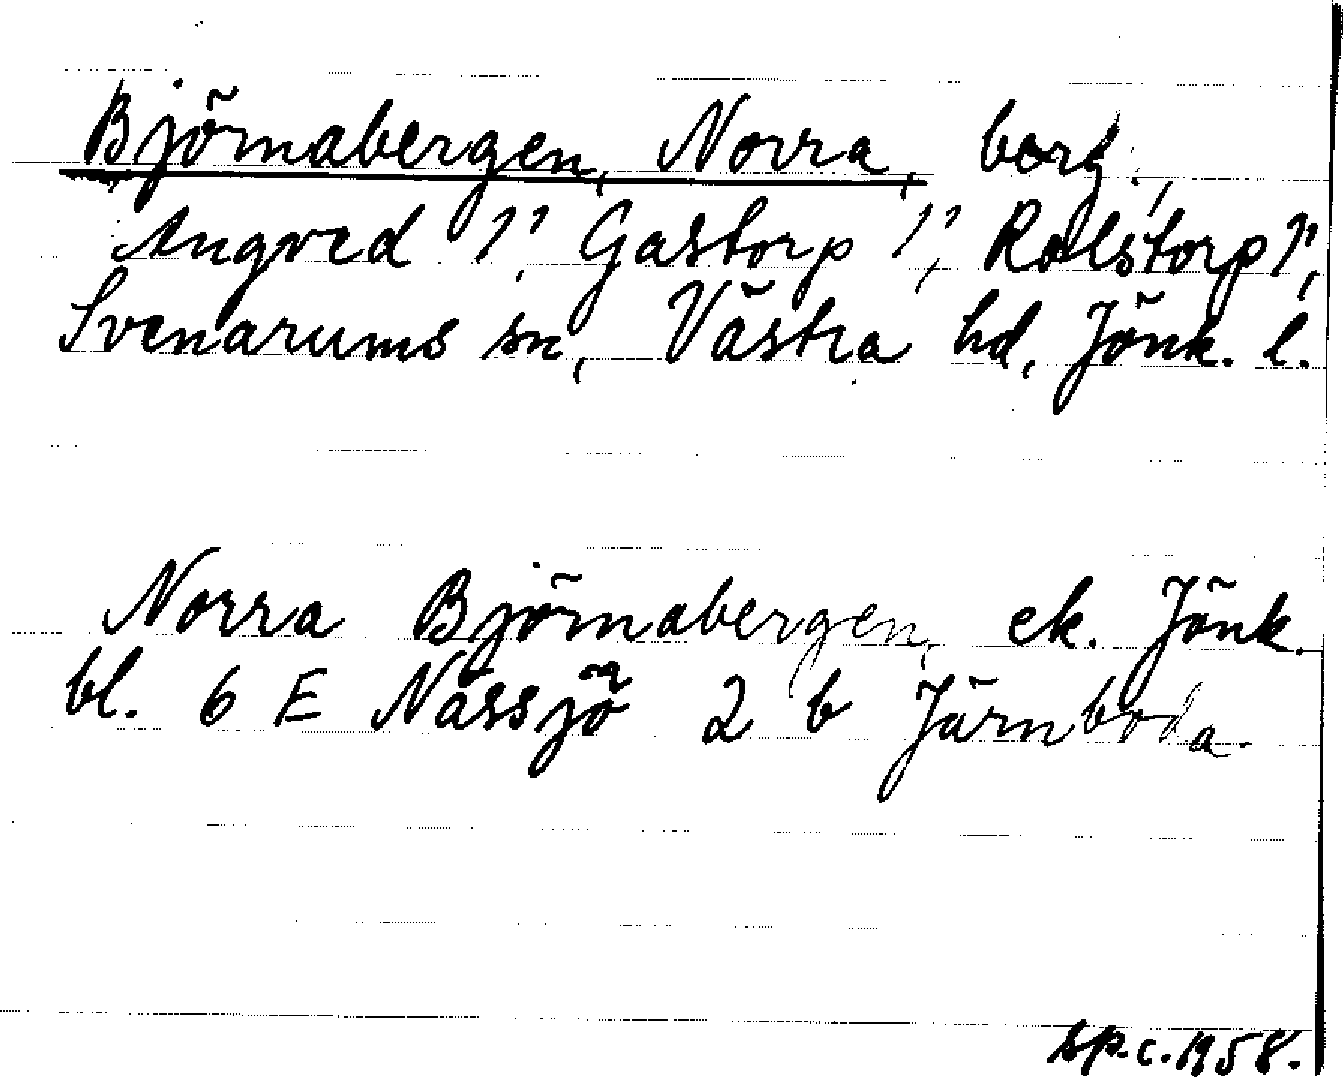 Björnabergen, Norra, berg,
Angved 1/1, Gastorp 1/1, Rolstorp 1/1,
Svenarums sn, Västra hd, Jönk. l.
Norra Björnabergen, ek. Jönk.
bl. 6 E Nässjö 2 b Järnboda.
sp.c. 1958.